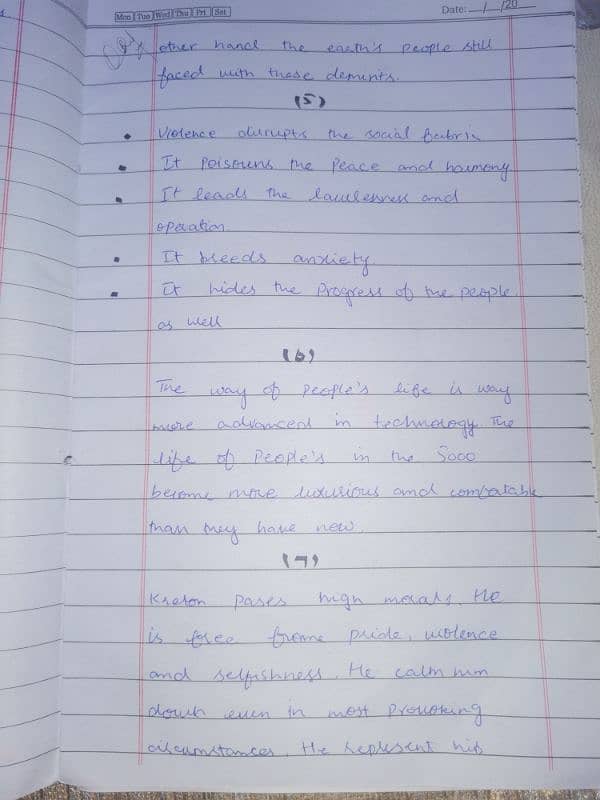 Mon Tue Wed Thu Fri Sat
Date: __/__/20
other hand the earth's people still
faced with these demirits.
(5)
• Violence disrupts the social fabric
• It poisouns the peace and haimony
• It leads the lawlessness and
operation
• It breeds anxiety
• It hides the progress of the people
as well
(6)
The way of people's life is way
more advanced in technology. The
life of people's in the 5000
become more luxurious and comfortable
than they have now.
(7)
Kreton poses high morals. He
is free frome pride, violence
and selfishness. He calm him
down even in most provoking
circumstances. He represent his